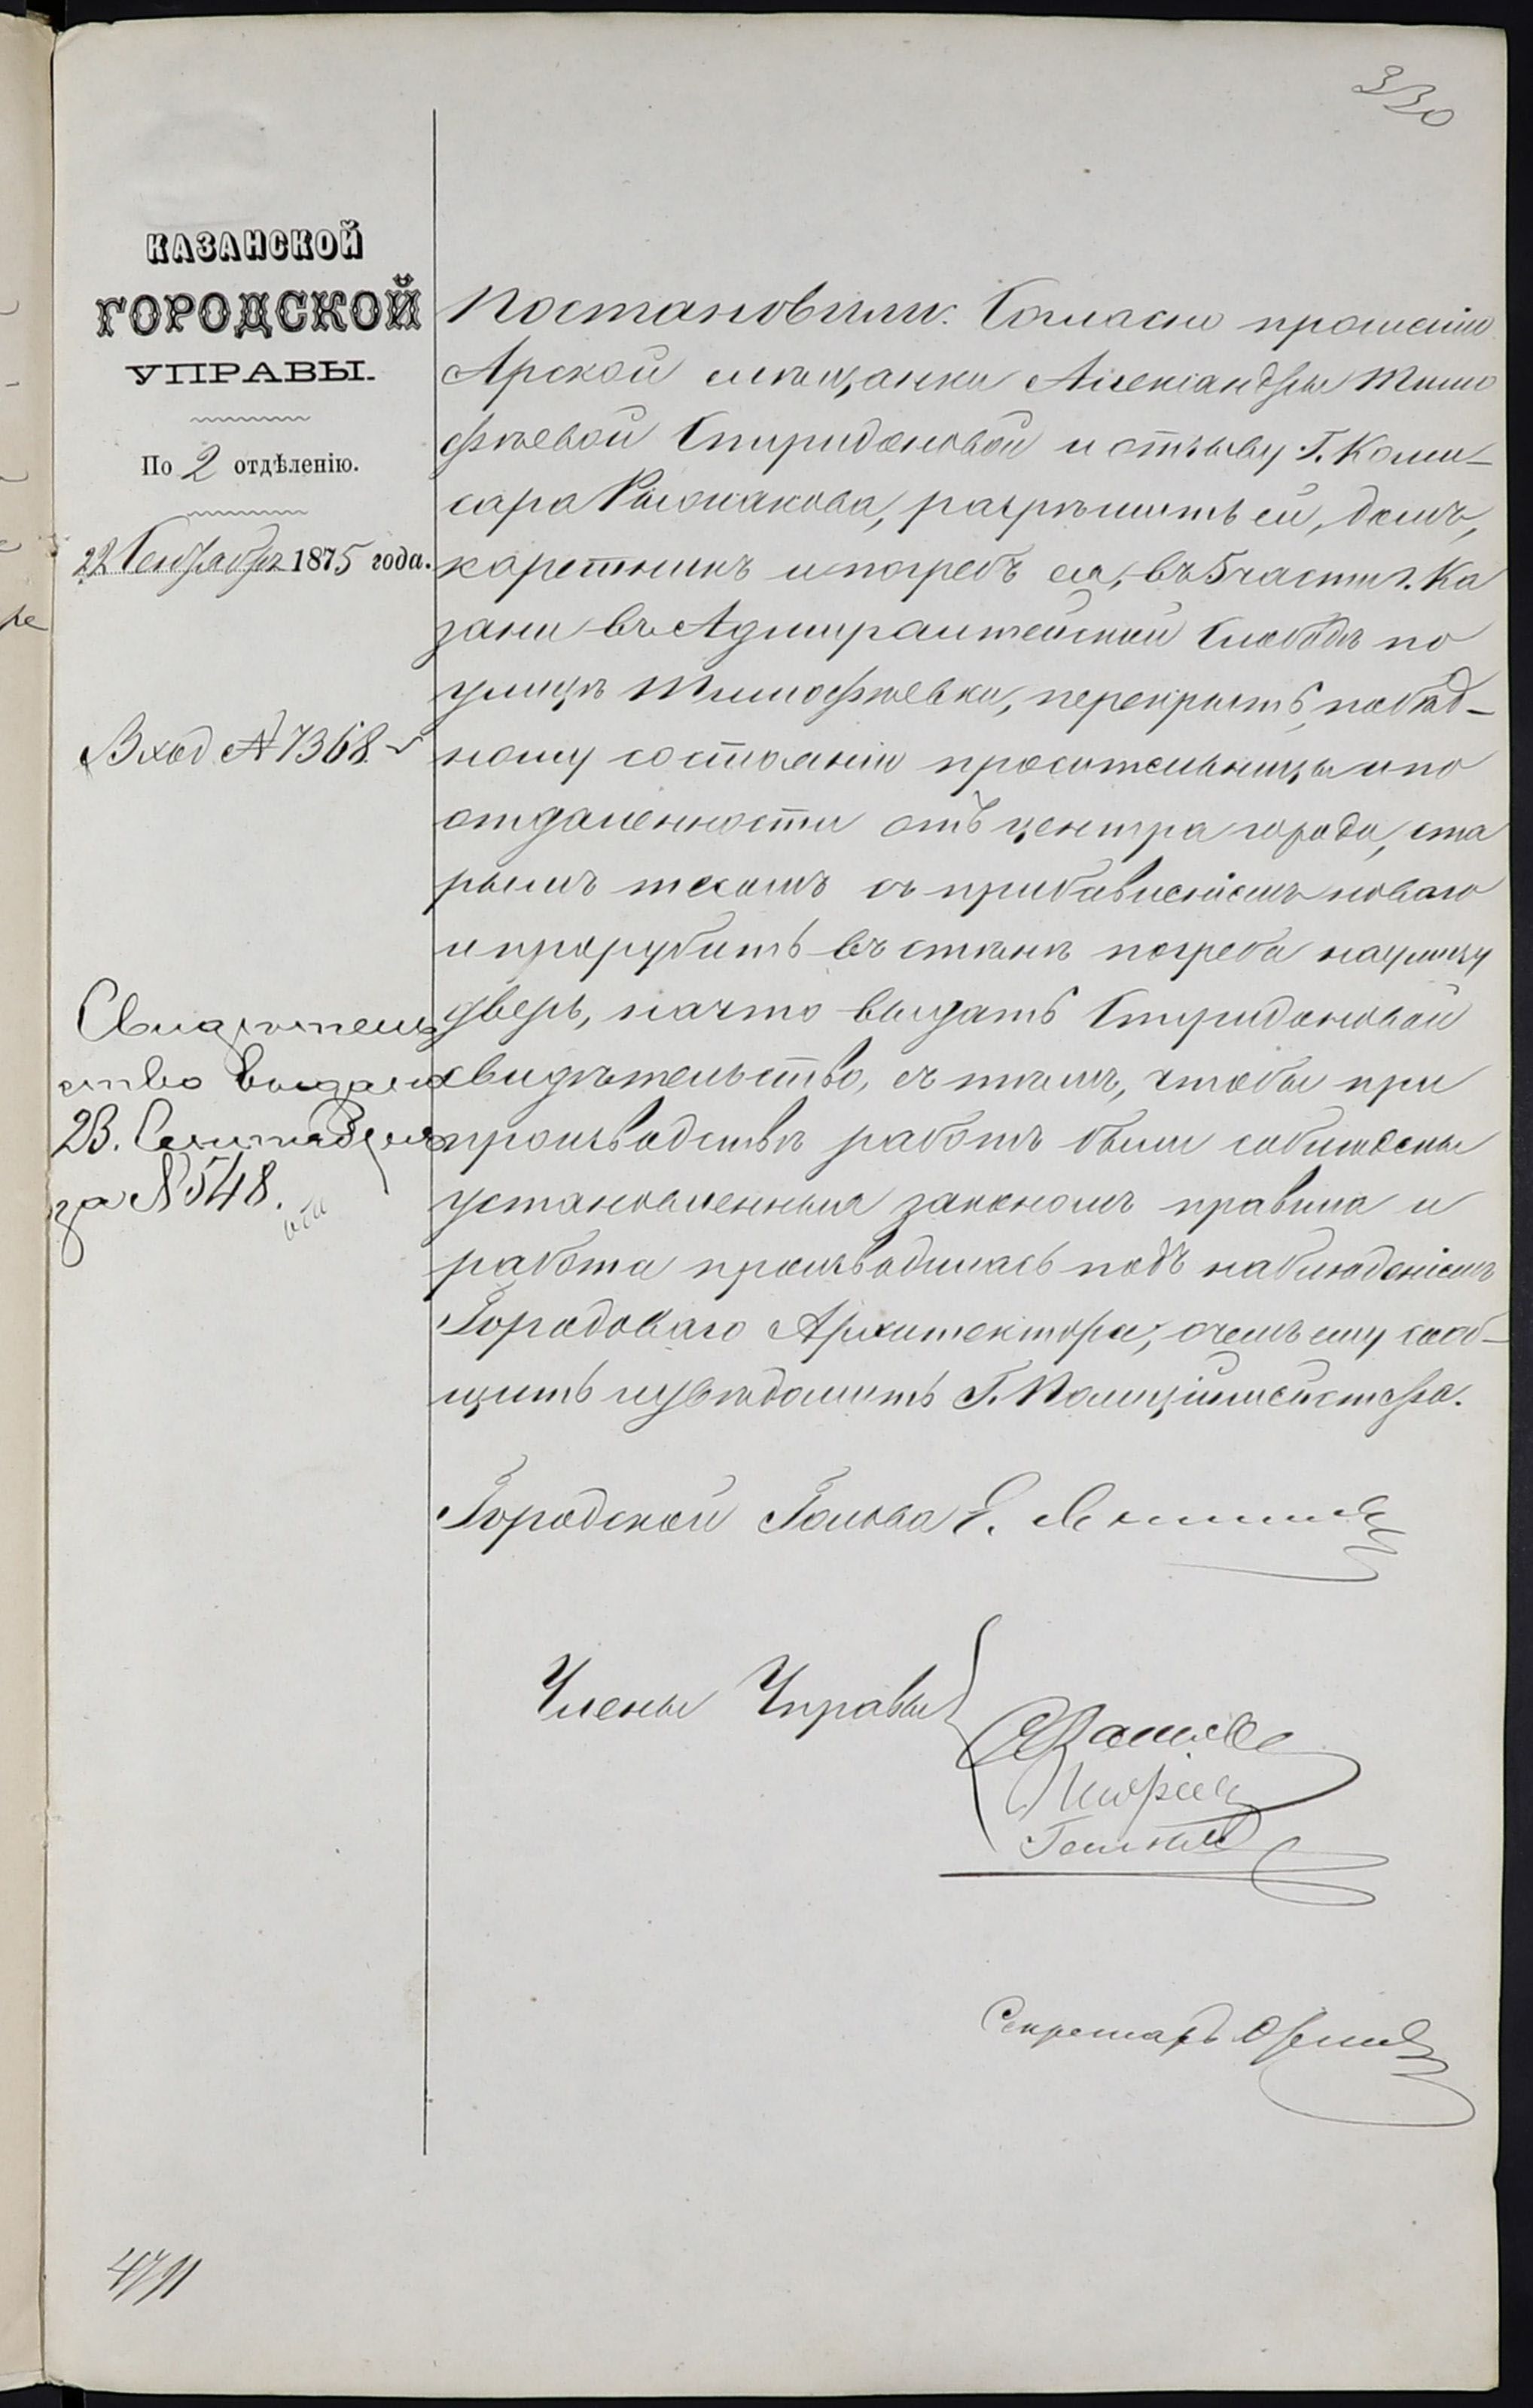 330
КАЗАНСКОЙ
ГОРОДСКОЙ
УПРАВЫ.
По 2 отдѣленію.
22 Сентября 1875 года.
Вход № 7368.
Свидѣтель
ство выдано
23. Сентября
за № 548.
Постановили: Согласно прошенію
Арской мѣщанки Александры Тимо
фѣевой Спиридоновой и отзыву Г. Коми-
сара разрѣшить ей, домъ,
каретникъ и погребъ ея, въ 5 части г. Ка
зани въ Адмиралтейской Слободѣ по
улицѣ Тимофѣевки, перекрыть, по бѣд-
ному состоянію просительницы и по
отдаленности отъ центра города, ста
рымъ тесомъ съ прибавленіемъ новаго
и прорубить въ стѣнѣ погреба на улицу
дверь, на что выдать Спиридоновой
свидѣтельство, съ тѣмъ, чтобы при
производствѣ работъ были соблюдены
установленныя закономъ правила и
работа производилась подъ наблюденіемъ
Городоваго Архитектора, о чемъ ему сооб-
щить и увѣдомить Г. Полиціймейстера.
Городской Голова Е.
Члены Управы
Секретарь
4791